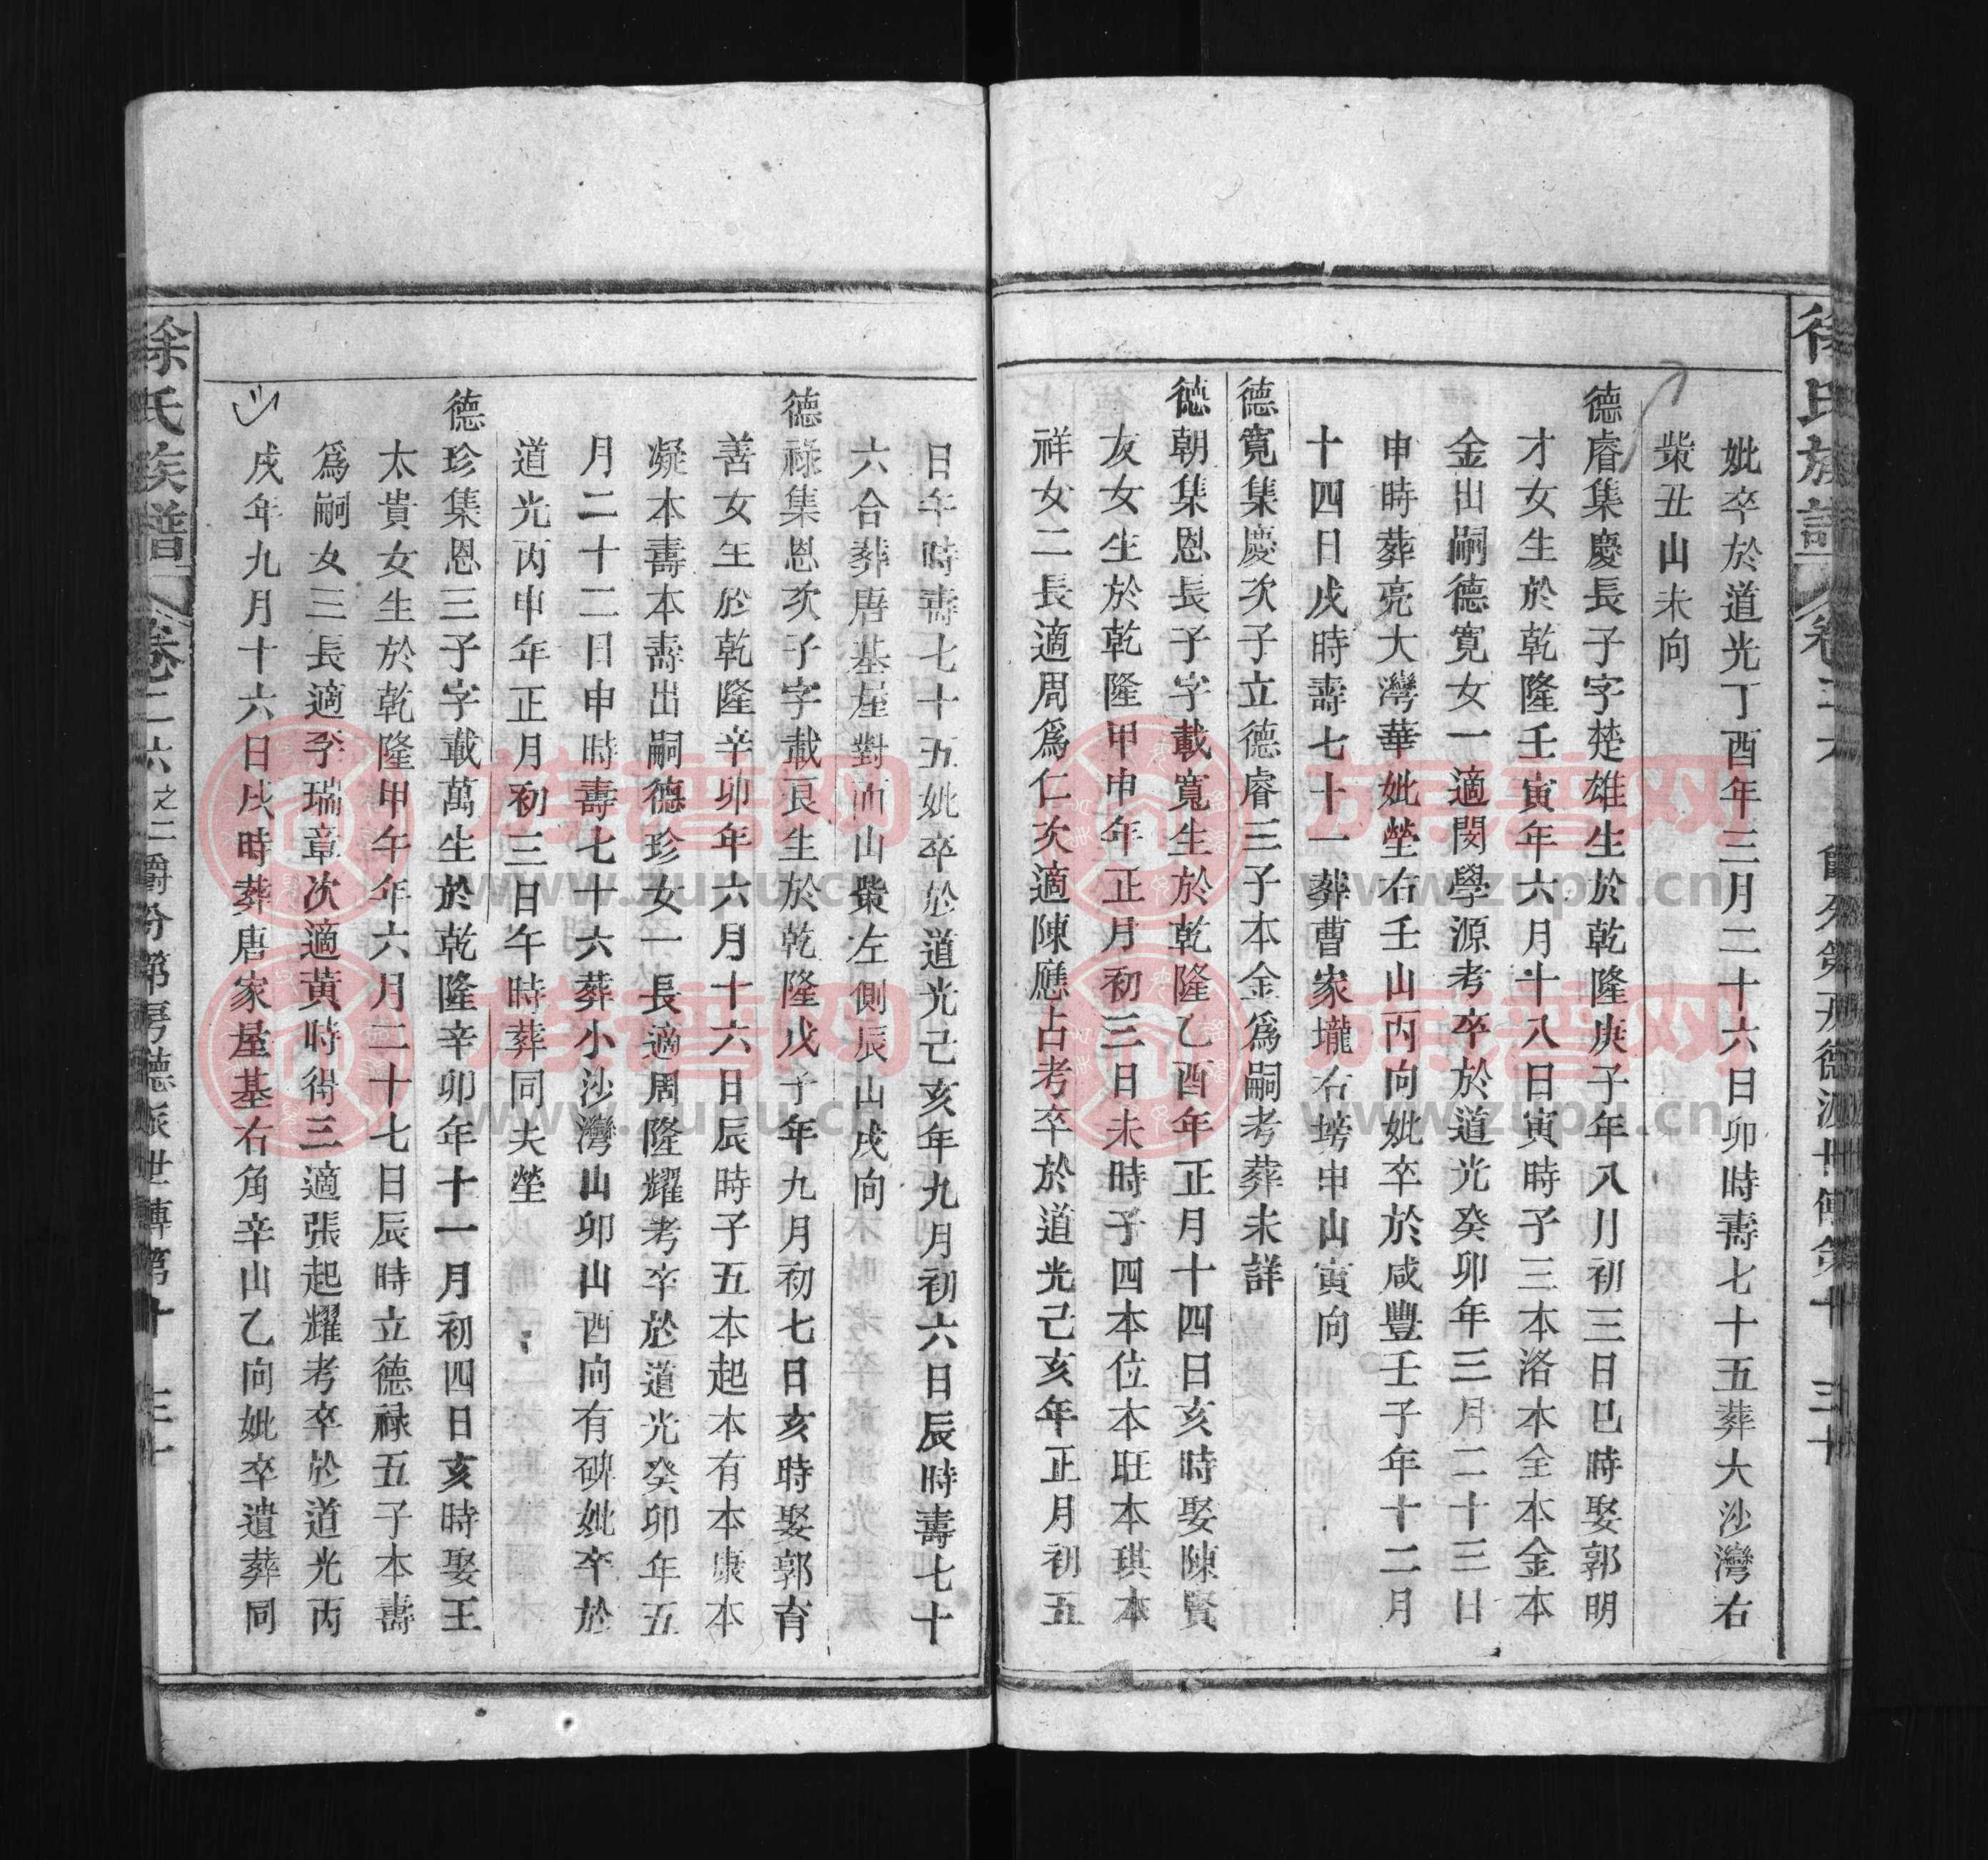 妣卒於道光丁酉年三月二十六日卯時壽七十五葬大沙灣右
柴丑山未向
德睿集慶長子字楚雄生於乾隆庚子年八月初三日巳時娶郭明
才女生於乾隆壬寅年六月十八日寅時子三本洛本全本金本
金出嗣德寛女一適閔學源考卒於道光癸卯年三月二十三日
申時葬亮大灣華妣塋右壬山丙向妣卒於咸豐壬子年十二月
十四日戌時壽七十一葬曹家壠右塝申山寅向
德寛集慶次子立德睿三子本金爲嗣考葬未詳
德朝集恩長子字載寬生於乾隆乙酉年正月十四日亥時娶陳賢
友女生於乾隆甲申年正月初三日未時子四本位本旺本琪本
祥女二長適周爲仁次適陳應占考卒於道光己亥年正月初五
日午時壽七十五妣卒於道光己亥年九月初六日辰時壽七十
六合葬唐基屋對面山柴左側辰山戌向
德祿集恩次子字載良生於乾隆戊子年九月初七日亥時娶郭育
善女生於乾隆辛卯年六月十六日辰時子五本起本有本康本
凝本壽本壽出嗣德珍女一長適周隆耀考卒於道光癸卯年五
月二十二日申時壽七十六葬小沙灣山卯山酉向有碑妣卒於
道光丙申年正月初三日午時葬同夫塋
德珍集恩三子字載萬生於乾隆辛卯年十一月初四日亥時娶王
太貴女生於乾隆甲午年六月二十七日辰時立德祿五子本壽
爲嗣女三長適李瑞章次適黃時衙三適張起耀考卒於道光丙
戌年九月十六日戌時葬唐家屋基右角辛山乙向妣卒遺葬同
徐氏族譜
卷二六之二
德派世傳第十
族譜网
www.zupu.cn
族譜网
www.zupu.cn
族譜网
www.zupu.cn
族譜网
www.zupu.cn